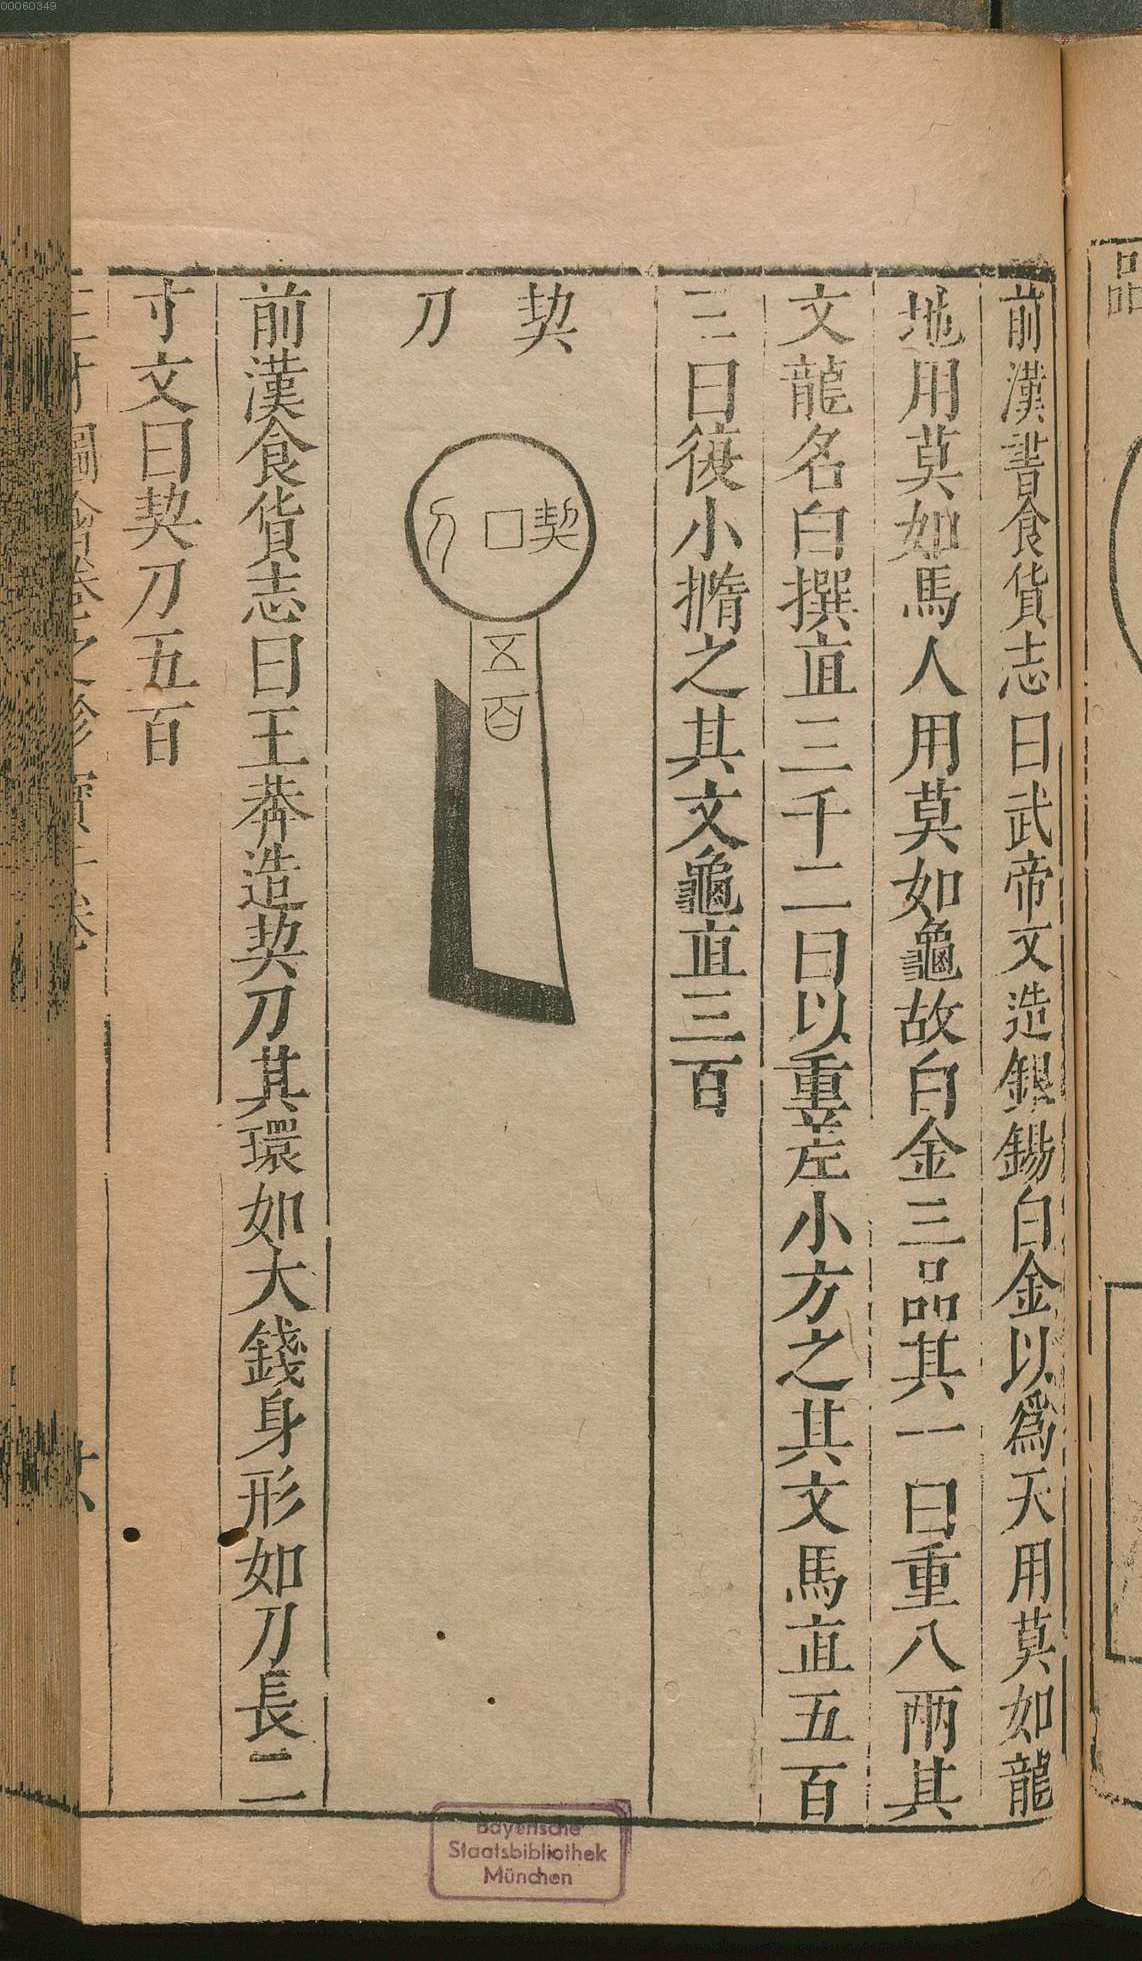 前漢書食貨志曰武帝又造銀錫白金以爲天用莫如龍
地用莫如馬人用莫如龜故白金三品其一曰重八兩其
文龍名白撰直三千二曰以重差小方之其文馬直五百
三曰復小撱之其文龜直三百
契
刀
契
刀
五百
前漢食貨志曰王莽造契刀其環如大錢身形如刀長二
寸文曰契刀五百
三才圖會卷之珍寶一卷
品
00060349
Bayerische
Staatsbibliothek
München